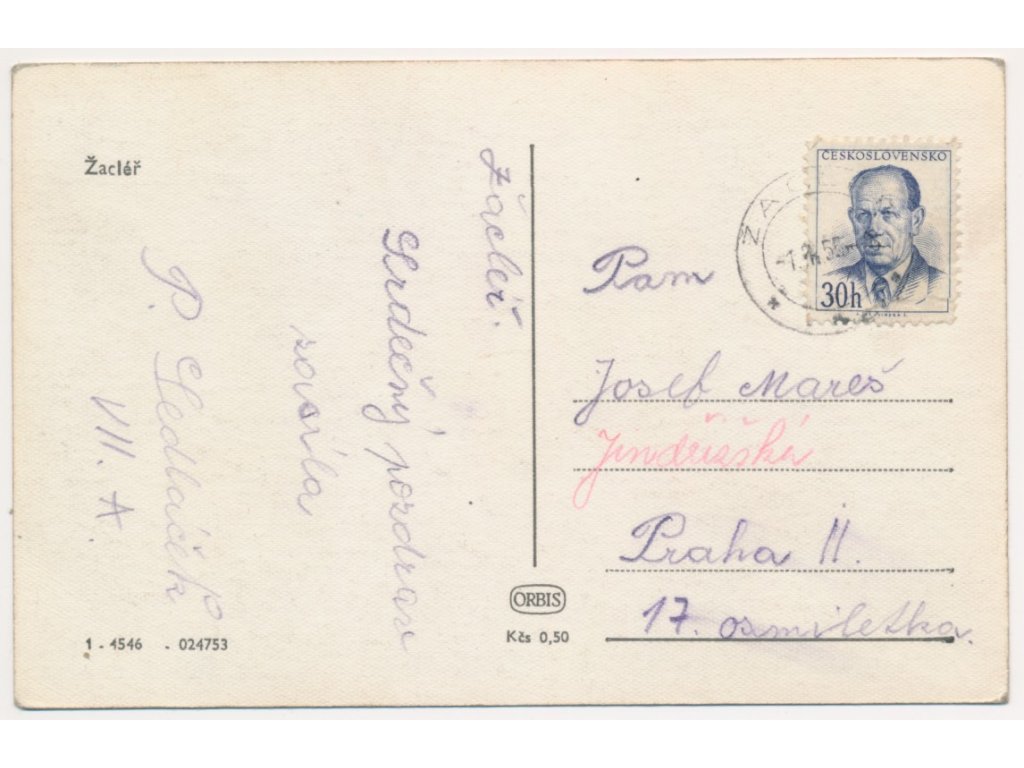 Žacléř
Žacléř.
Srdečný pozdrav
zasíla
P. Sedláček
VIII. A.
1 - 4546 - 024753
ORBIS
Kčs 0,50
ČESKOSLOVENSKO
30h
Pam
Josef Mareš
Jindřišská
Praha II.
17. osmiletka.